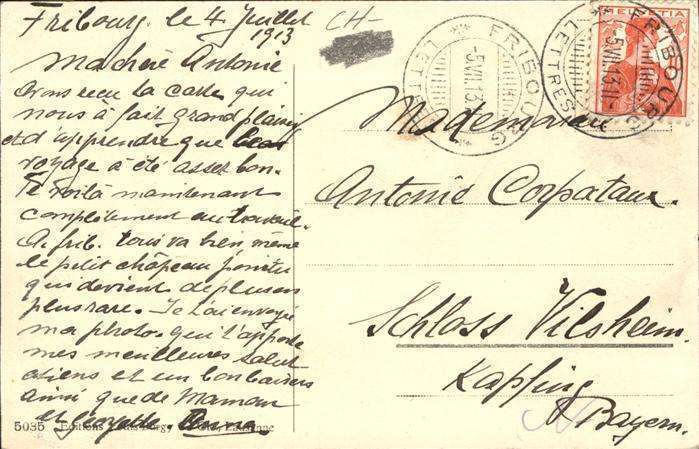 Fribourg, le 4 Juillet
1913
CH-
Ma chère Antonie
Avons recu ta carte qui
nous à fait grand plaisir
et d'apprendre que
voyage à été assez bon.
Te voilà maintenant
complètement au travail.
A frib. tous va bien, même
le petit châpeau pointu
qui devient de plus en
plus rare. Je t'ai envoyé
ma photo. qui t'apporte
mes meilleures salut
ations et un bon baisers
ainsi que de Maman
et Anna
5035 Editions Louis Burgy & Cie., Lausanne
FRIBOURG
LETT
-5.VII.13
HELVETIA
FRIBOURG
LETTRES
5.VII.13.11-
Mademoiselle
Antonie Corpataux.
Schloss Vilsheim.
Kapfing
Bayern.